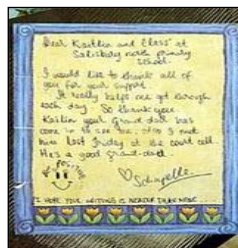 Dear Kaitlin and Class at
Salisbury north primary
school.
I would like to thank all of
you for your support.
It really helps me get through
each day. So thank you.
Kaitlin your Grand dad has
come in to see me, also I met
him last friday at the court cell.
He's a good grand-dad.
Schapelle
I HOPE YOUR WRITING IS NEATER THAN MINE